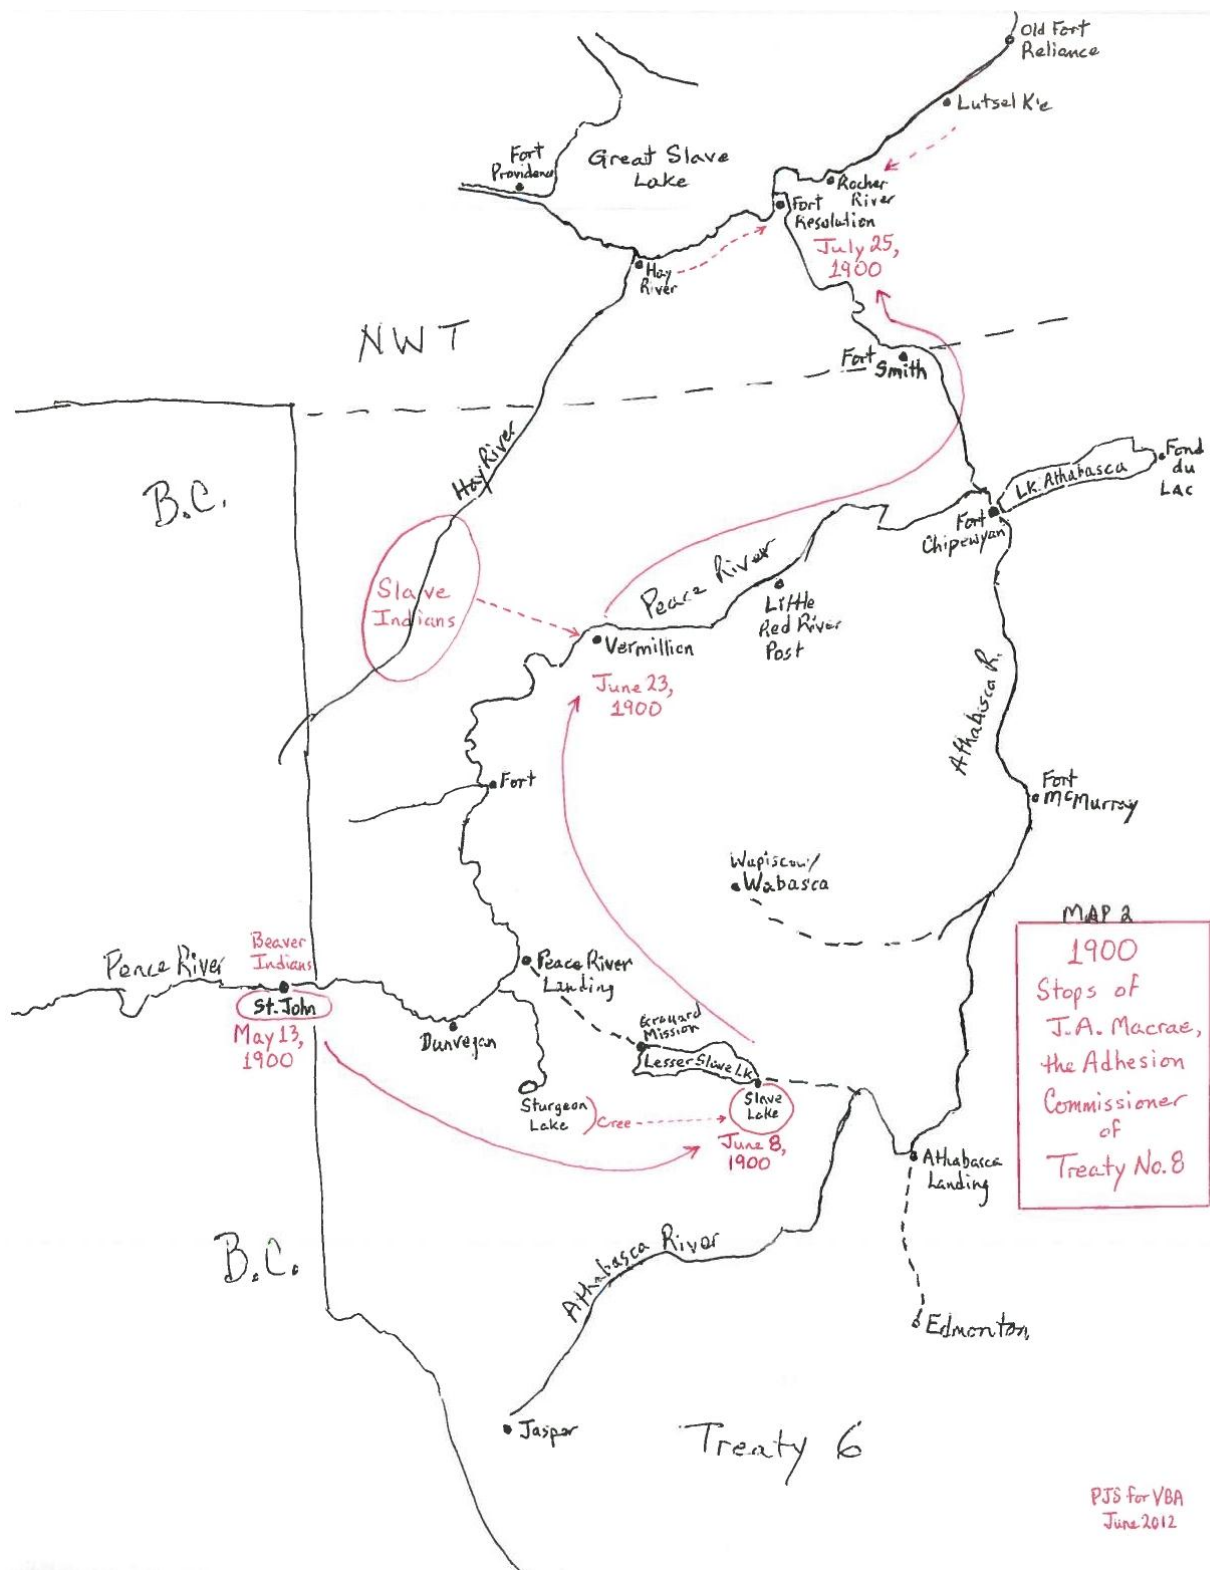 Old Fort
Reliance
Lutsel K'e
Fort
Providence
Great Slave
Lake
Rocher
River
Fort
Resolution
July 25,
1900
Hay
River
NWT
Fort
Smith
Hay River
B.C.
Lk. Athabasca
Fond
du
Lac
Fort
Chipewyan
Slave
Indians
Peace River
Little
Red River
Post
Vermillion
June 23,
1900
Athabasca R.
Fort
Fort
McMurray
Wapiscow/
Wabasca
MAP 2
1900
Stops of
J.A. Macrae,
the Adhesion
Commissioner
of
Treaty No. 8
Beaver
Indians
Peace River
St. John
May 13,
1900
Peace River
Landing
Dunvegan
Grouard
Mission
Lesser Slave Lk.
Slave
Lake
Sturgeon
Lake
Cree
June 8,
1900
Athabasca
Landing
B.C.
Athabasca River
Edmonton
Jasper
Treaty 6
PJS for VBA
June 2012